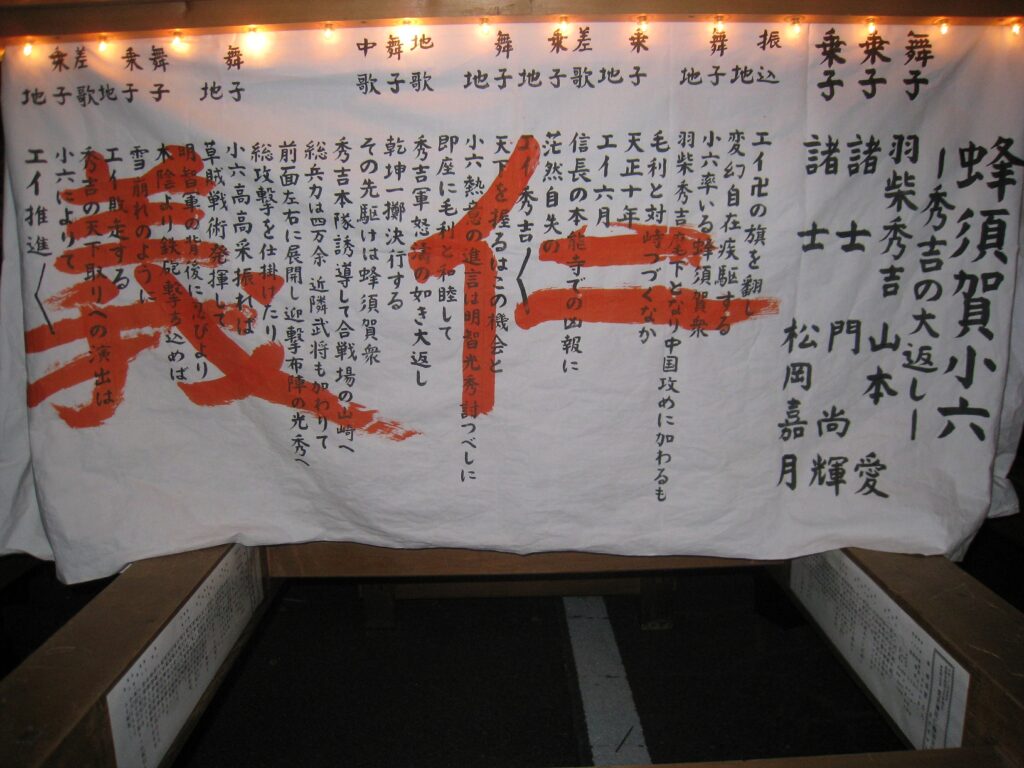 蜂須賀小六
ー秀吉の大返しー
舞子 羽柴秀吉 山本 愛
乗子 諸士 門 尚輝
乗子 諸士 松岡嘉月
振込 エイ卍の旗を翻し
地 変幻自在疾駆する
舞子 小六率いる蜂須賀衆
地 羽柴秀吉麾下となり中国攻めに加わるも
毛利と対峙つづくなか
乗子 天正十年
地 エイ六月
差歌 信長の本能寺での凶報に
乗子 茫然自失の
地 エイ秀吉〱
舞子 天下を握るはこの機会と
地 小六熱意の進言は明智光秀討つべしに
即座に毛利と和睦して
地歌 秀吉軍怒濤の如き大返し
舞子 乾坤一擲決行する
中歌 その先駆けは蜂須賀衆
秀吉本隊誘導して合戦場の山崎へ
総兵力は四万余 近隣武将も加わりて
前面左右に展開し迎撃布陣の光秀へ
総攻撃を仕掛けたり
舞子 小六高高采振れば
地 草賊戦術発揮して
明智軍の背後に忍びより
舞子 木陰より鉄砲撃ち込めば
乗子 雪崩れのように
地 エイ敗走する
差歌 秀吉の天下取りへの演出は
乗子 小六によりて
地 エイ推進〱
仁義